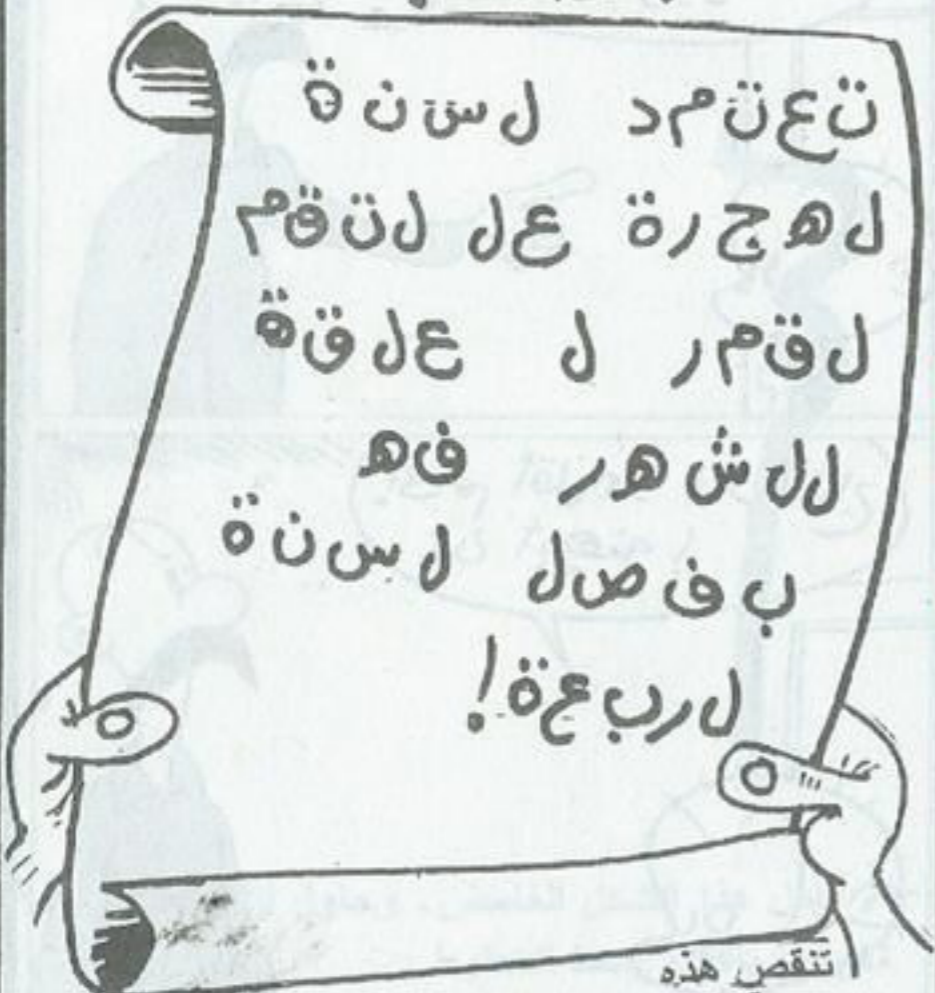 ت ع ت م د ل س ن ة
ل ه ج ر ة ع ل ل ت ق م
ل ق م ر ل ع ل ق ة
ل ل ش ه ر ف ه
ب ف ص ل ل س ن ة
ل ر ب ع ة !
تنقص هذه